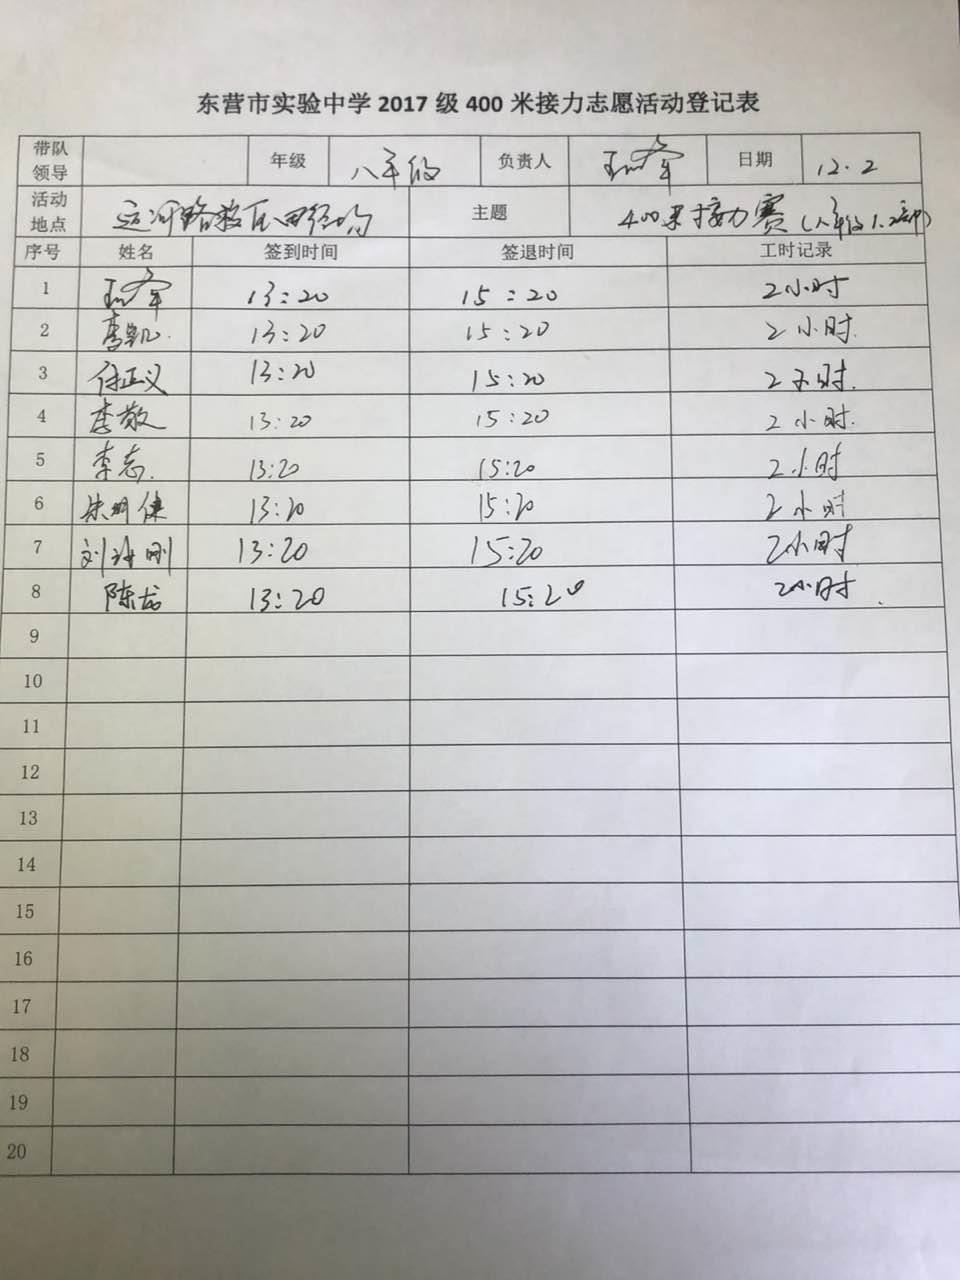 东营市实验中学2017级400米接力志愿活动登记表
带队领导 年级 八年级 负责人 日期 12.2
活动地点 运河路校区田径场 主题 400米接力赛(八年级1.2
序号 姓名 签到时间 签退时间 工时记录
1 13:20 15:20 2小时
2 李凯 13:20 15:20 2小时.
3 付正义 13:20 15:20 2小时.
4 李敬 13:20 15:20 2小时.
5 李志. 13:20 15:20 2小时
6 朱明健 13:20 15:20 2小时
7 13:20 15:20 2小时
8 陈龙 13:20 15:20 2小时.
9
10
11
12
13
14
15
16
17
18
19
20